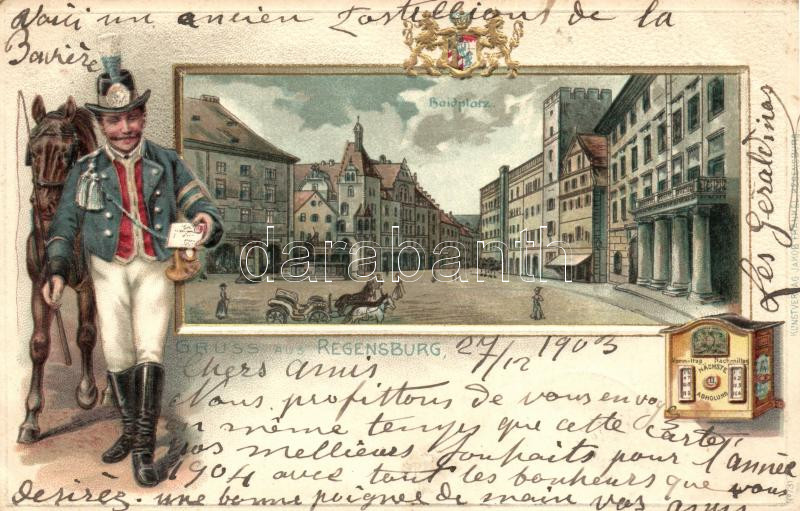 Voici un ancien Postillions de la
Bavière
Haidplatz.
darabanth
GRUSS aus REGENSBURG,
27/12 1903
Chers amis
Nous profittons de vous envoyer
en même temps que cette carte
nos meilleurs souhaits pour l'année
1904 avec tout les bonheurs que vous
desirez. une bonne poignee de main vos amis
Les Geraldinas
Vormittag Nachmittag
NÄCHSTE
11
ABHOLUNG